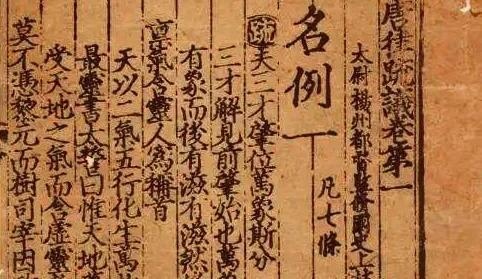 唐律疏議卷第一
太尉揚州都督監修國史上
名例一
凡七條
疏夫三才肇位萬象斯分
三才解見前肇始也萬
有象而後有滋有滋然
稟氣含靈人爲稱首
天以二氣五行化生萬
最靈書太誓曰惟天地萬
受天地之氣而含虛靈
莫不憑黎元而樹司宰因